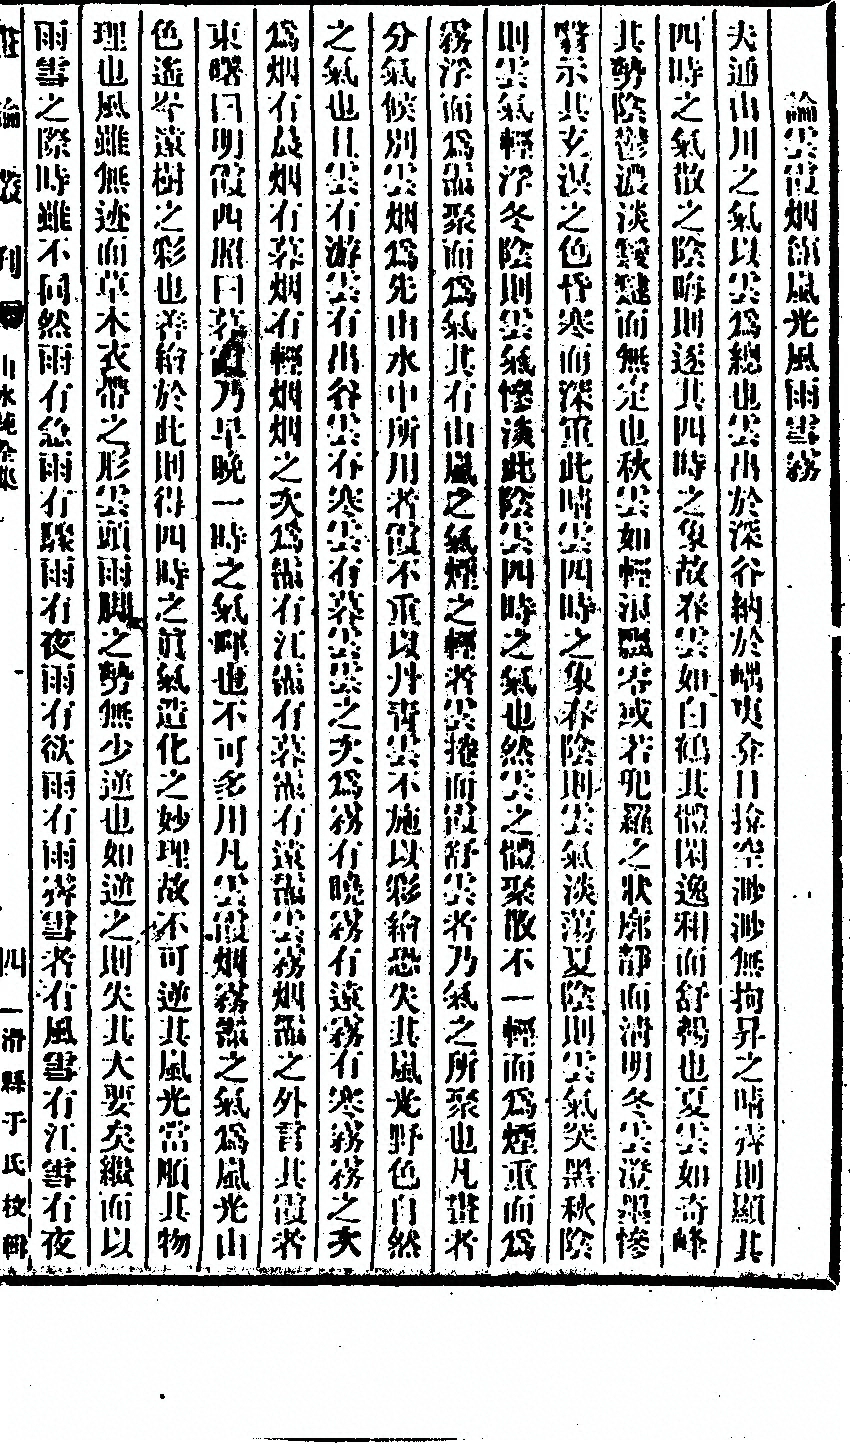 論雲霞烟靄嵐光風雨雪霧
夫通山川之氣以雲爲總也雲出於深谷納於嵎夷弇日掩空渺渺無拘昇之晴霽則顯其
四時之氣散之陰晦則逐其四時之象故春雲如白鶴其體閑逸和而舒暢也夏雲如奇峰
其勢陰鬱濃淡靉靆而無定也秋雲如輕浪飄零或若兜羅之狀廓靜而清明冬雲澄墨慘
翳示其玄溟之色昏寒而深重此晴雲四時之象春陰則雲氣淡蕩夏陰則雲氣突黑秋陰
則雲氣輕浮冬陰則雲氣慘淡此陰雲四時之氣也然雲之體聚散不一輕而爲煙重而爲
霧浮而爲靄聚而爲氣其有山嵐之氣煙之輕者雲捲而霞舒雲者乃氣之所聚也凡畫者
分氣候別雲烟爲先山水中所用者霞不重以丹靑雲不施以彩繪恐失其嵐光野色自然
之氣也且雲有游雲有出谷雲有寒雲有暮雲雲之次爲霧有曉霧有遠霧有寒霧霧之次
爲烟有晨烟有暮烟有輕烟烟之次爲靄有江靄有暮靄有遠靄雲霧烟靄之外言其霞者
東曙曰明霞西照曰暮霞乃早晚一時之氣暉也不可多用凡雲霞烟霧靄之氣爲嵐光山
色遙岑遠樹之彩也善繪於此則得四時之眞氣造化之妙理故不可逆其嵐光當順其物
理也風雖無迹而草木衣帶之形雲頭雨脚之勢無少逆也如逆之則失其大要矣繼而以
雨雪之際時雖不同然雨有急雨有驟雨有夜雨有欲雨有雨霽雪者有風雪有江雪有夜
論叢刊 山水純全集 四 一滑縣于氏校輯